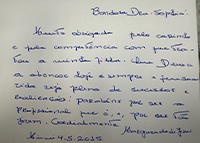 Bondosa Dra. Sophia.
Muito obrigada pelo carinho
e pela competência com que tra-
tou a minha filha. Que Deus
a abençoe hoje e sempre e
vida seja plena de sucessos e
realização. Parabéns por ser a
profissional que é, e, por ser
Cordialmente
4.5.2015